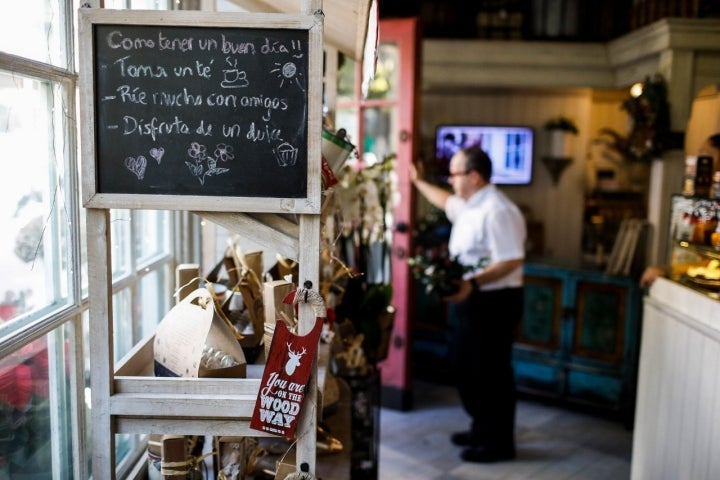 Como tener un buen día !!
- Toma un té
- Ríe mucho con amigos
- Disfruta de un dulce
You are
ON THE
WOOD
WAY